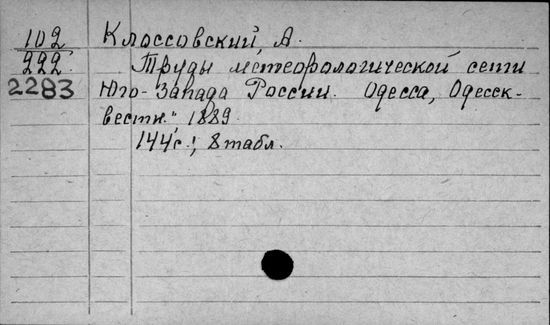 102 Клоссовский, А.
222. Труды метеорологической сети
2283 Юго-Запада России. Одесса, Одесск.
вестн." 1889.
144с.; 8 табл.